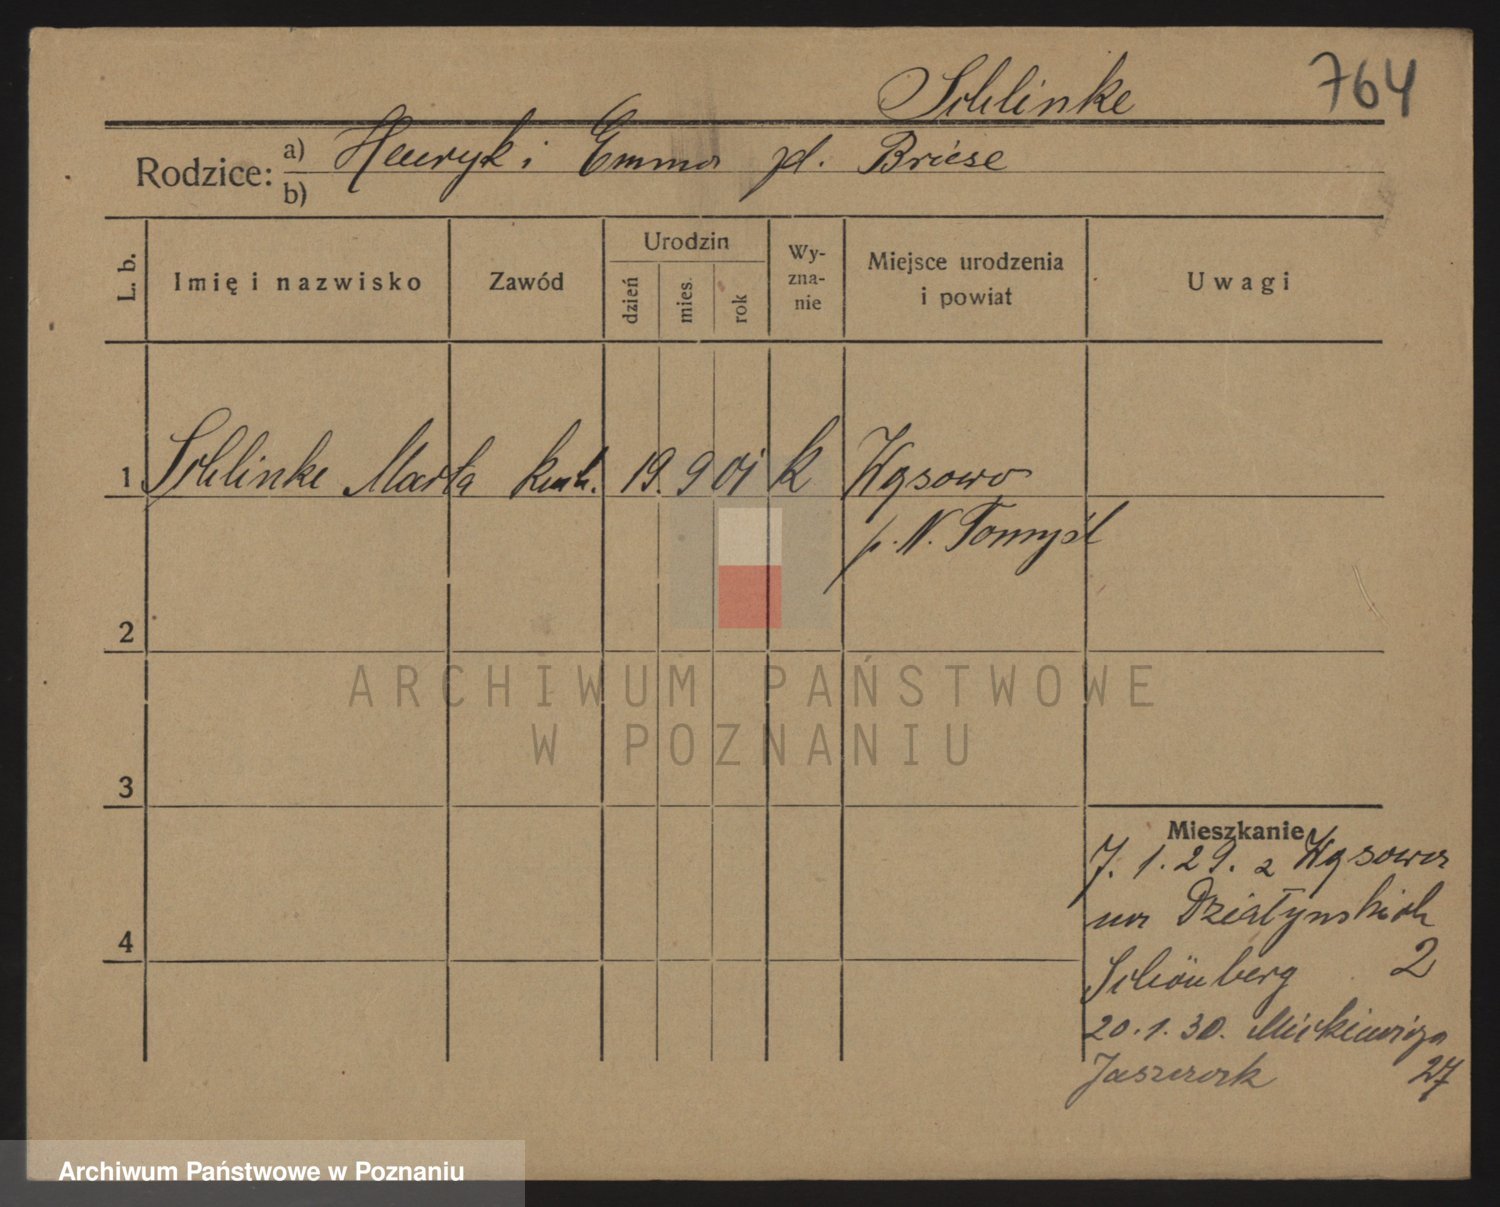 Schlinke
764
Rodzice: a) Henryk i Emma zd. Briese
b)
L. b.
Imię i nazwisko
Zawód
Urodzin
dzień
mies.
rok
Wy-
zna-
nie
Miejsce urodzenia
i powiat
Uwagi
1 Schlinke Marta kuch. 19. 9 01 k Wąsowo
p. N. Tomyśl
2
ARCHIWUM PAŃSTWOWE
W POZNANIU
3
Mieszkanie
7. 1. 29. z Wąsowa
na Działyńskich
Schönberg 2
4
20. 1. 30. Mickiewicza
Jaszczak 27
Archiwum Państwowe w Poznaniu